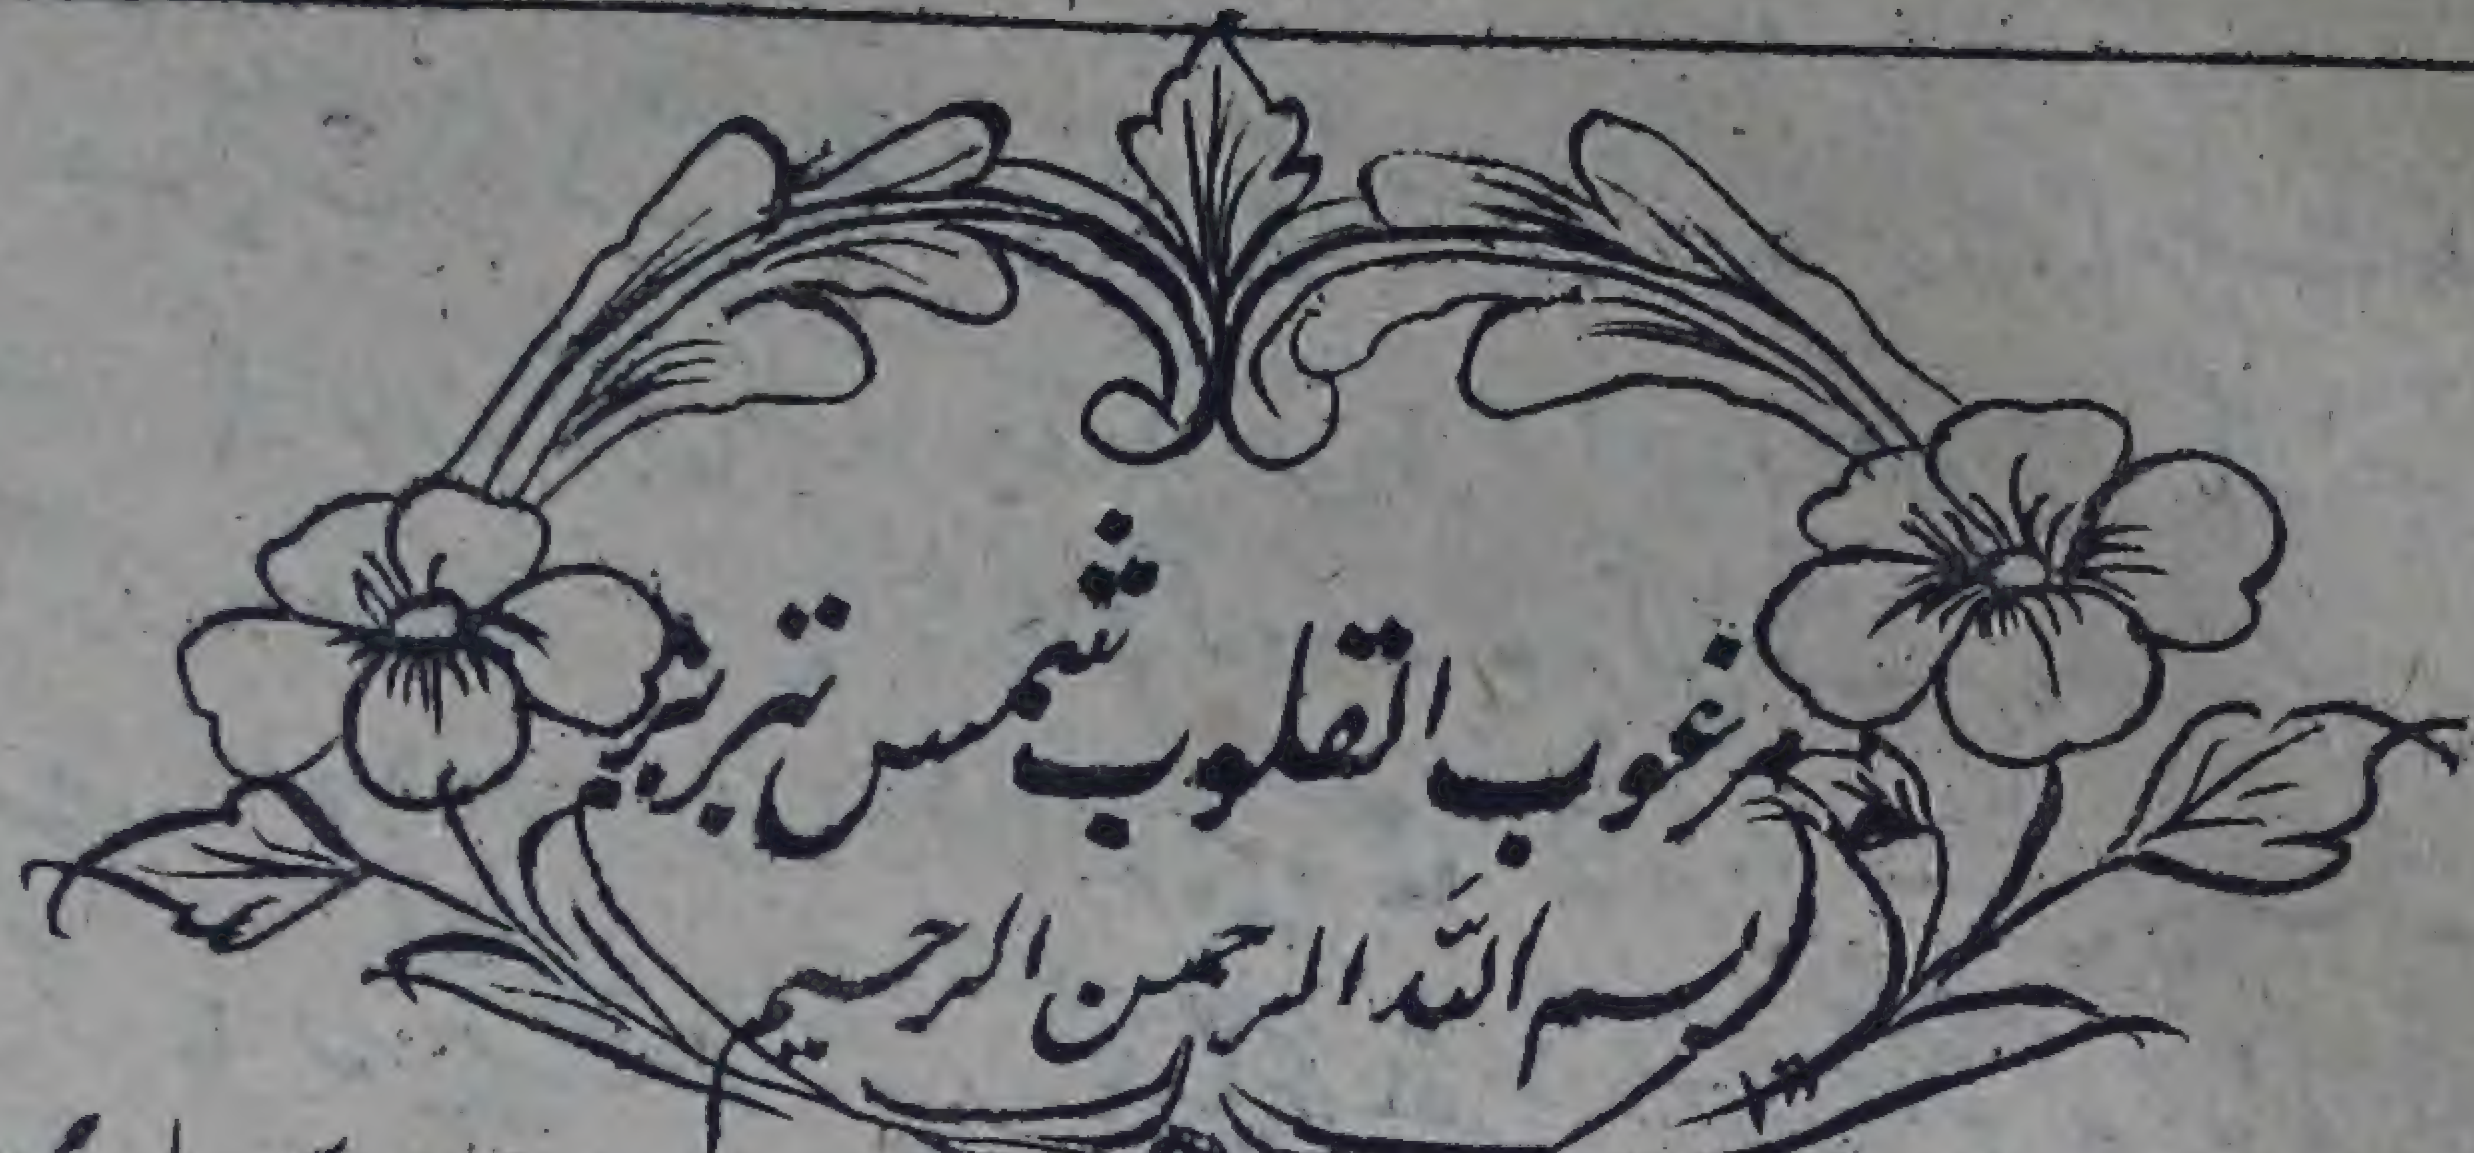 مرغوب القلوب شمس تبریز
بسم اللّٰه الرحمن الرحیم